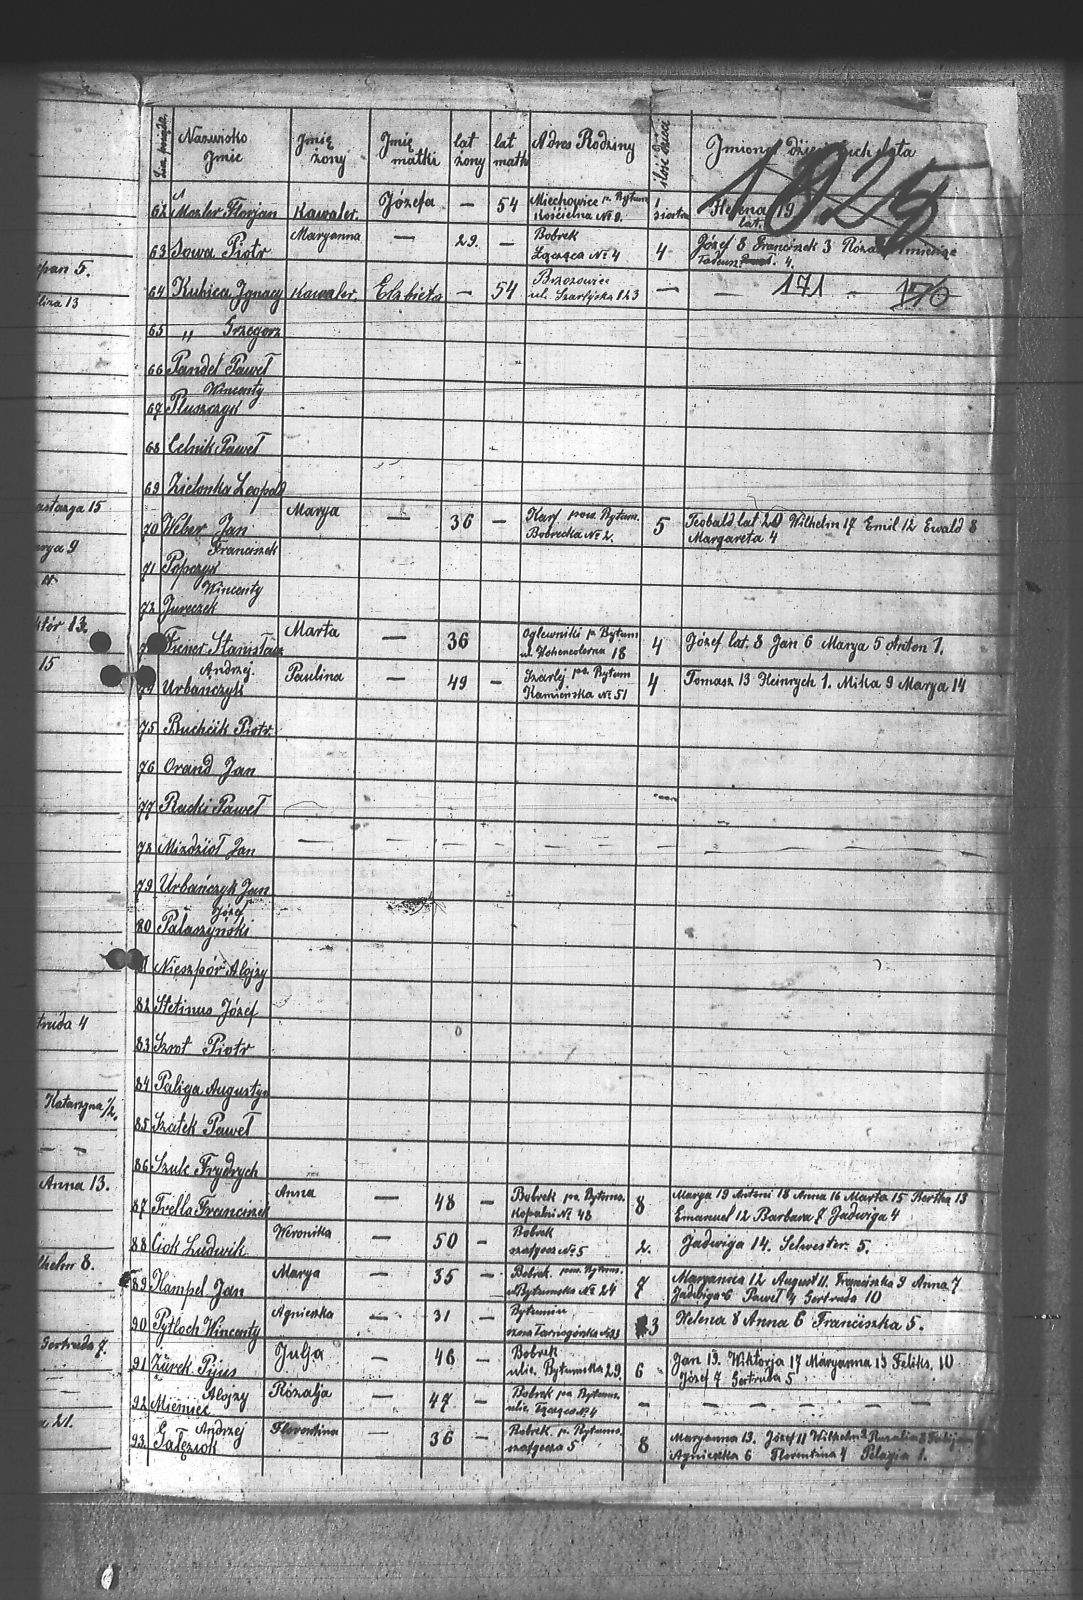 Nazwisko Imie Imię żony Imię matki lat żony lat matk Adres Rodziny ilość dzieci Imiona dzieci ich lata
1025
62 Mozler Florjan Kawaler. Józefa — 54 Miechowice p. Bytom Kościelna № 9. 1 siostra Helena 19 lat.
63 Sowa Piotr Maryanna — 29. — Bobrek Łącząca № 4 4 Józef 8 Franciszek 3 Róża miesiące Tadeusz 4.
64 Kubica Ignacy Kawaler. Elżbieta — 54 Brzozowice ul. Szarlejska 123 — — 171 — 170
65 " Grzegorz
66 Pandel Paweł
67 Pluszczyk Wincenty
68 Celnik Paweł
69 Zielonka Leopold
70 Weber Jan Marya — 36 — Karf pow. Bytom. Bobrecka № 2. 5 Teobald lat 20 Wilhelm 17 Emil 12 Ewald 8
Margareta 4
71 Popczyk Franciszek
72 Jureczek Wincenty
Fiener Stanisław Marta — 36 p. Bytom ul. Hohencolerna 18 4 Józef lat. 8 Jan 6 Marya 5 Anton 1.
Urbańczyk Andrzej. Paulina — 49 — Szarlej pow. Bytom Kamieńska № 51 4 Tomasz 13 Heinrych 1. Mika 9 Marya 14
75 Buchcik Piotr.
76 Orand Jan
77 Racki Paweł
78 Mizdzioł Jan — — — — — — — —
79 Urbańczyk Jan
80 Palaszyński Józef
Nieszpór Alojzy
82 Stetinus Józef
83 Szrot Piotr
84 Paliga Augustyn
85 Szatek Paweł
86 Szulc Frydrych
87 Trella Franciszek Anna — 48 — Bobrek pow. Bytoms. Kopalni № 48 8 Marya 19 Antoni 18 Anna 16 Marta 15 Bertha 13
Emanuel 12 Barbara 7 Jadwiga 4
88 Ciok Ludwik Weronika — 50 — Bobrek № 5 2. Jadwiga 14. Selwester. 5.
89 Hampel Jan Marya — 35 — Bobrek. pow. Bytoms. ul. Bytomska № 24 7 Maryanica 12 August 11. Franciszka 9 Anna 7
Jadwiga 6 Paweł 4 Gertruda 10
90 Pytloch Wincenty Agnieszka — 31 — 3 Helena 8 Anna 6 Franciszka 5.
91 Żurek Pijus Julja — 46 — Bobrek ulic. Bytomska 29. 6 Jan 19. Wiktorja 17 Maryanna 13 Feliks. 10
Józef 7 Gertruda 5
92 Miemiec Alojzy Rozalja — 47 — Bobrek pow. Bytoms. ulic. Łącząca № 4 — — — — — — — —
93. Gałęziok Andrzej Florentina — 36 — Bobrek p. Bytoms. 5 8 Maryanna 13. Józef 11 Wilhelm 9 Rozalia 8
Agnieszka 6 Florentina 4 Pelagia 1.
pan 5.
liza 13
15
rya 9
któr 13.
15
truda 4
Katarzyna 1/2.
— —
Anna 13.
lhelm 8.
Gertruda 7.
a 21.